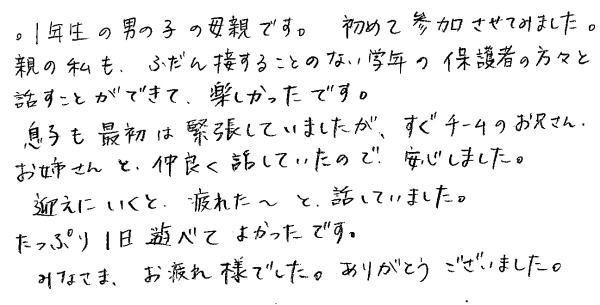 。1年生の男の子の母親です。 初めて参加させてみました。
親の私も、ふだん接することのない学年の保護者の方々と
話すことができて、楽しかったです。
息子も最初は緊張していましたが、すぐチームのお兄さん、
お姉さんと、仲良く話していたので、安心しました。
迎えにいくと、疲れた〜と、話していました。
たっぷり1日遊べてよかったです。
みなさま、お疲れ様でした。ありがとうございました。